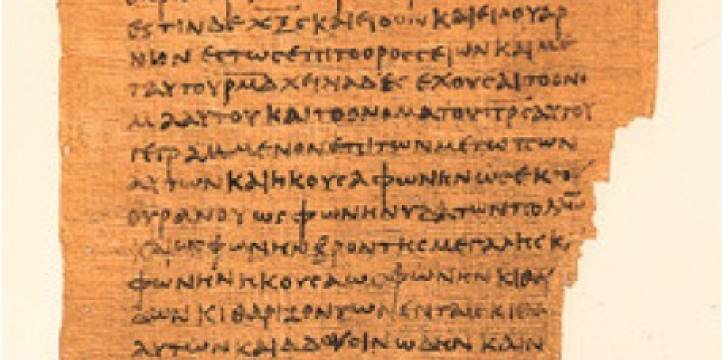 ΕϹΤΙΝ ΔΕ ΧΞϚ ΚΑΙ ΕΙΔΟΝ ΚΑΙ ΕΙΔΟΥ ΑΡ
ΝΙΟΝ ΕϹΤΩϹ ΕΠΙ ΤΟ ΟΡΟϹ ϹΕΙΩΝ ΚΑΙ ΜΕ
ΤΑΥΤΟΥ ΡΜΔ ΧΕΙΛΙΑΔΕϹ ΕΧΟΥϹΑΙ ΤΟ ΟΝΟ
ΜΑ ΑΥΤΟΥ ΚΑΙ ΤΟ ΟΝΟΜΑ ΤΟΥ ΠΡϹ ΑΥΤΟΥ
ΓΕΓΡΑΜΜΕΝΟΝ ΕΠΙ ΤΩΝ ΜΕΤΩΠΩΝ
ΑΥΤΩΝ ΚΑΙ ΗΚΟΥϹΑ ΦΩΝΗΝ ΩϹ ΕΚ ΤΟ
ΟΥΡΑΝΟΥ ΩϹ ΦΩΝΗΝ ΥΔΑΤΩΝ ΠΟΛΛΩ
ΚΑΙ ΩϹ ΦΩΝΗΝ ΒΡΟΝΤΗϹ ΜΕΓΑΛΗϹ Κ
ΦΩΝΗΝ ΗΚΟΥϹΑ ΩϹ ΦΩΝΗΝ ΚΙΘΑ
ΔΩΝ ΚΙΘΑΡΙΖΟΝΤΩΝ ΕΝ ΤΑΙϹ ΚΙΘΑ
ΑΥΤΩΝ ΚΑΙ ΑΔΟΥϹΙΝ ΩΔΗΝ ΚΑΙΝ